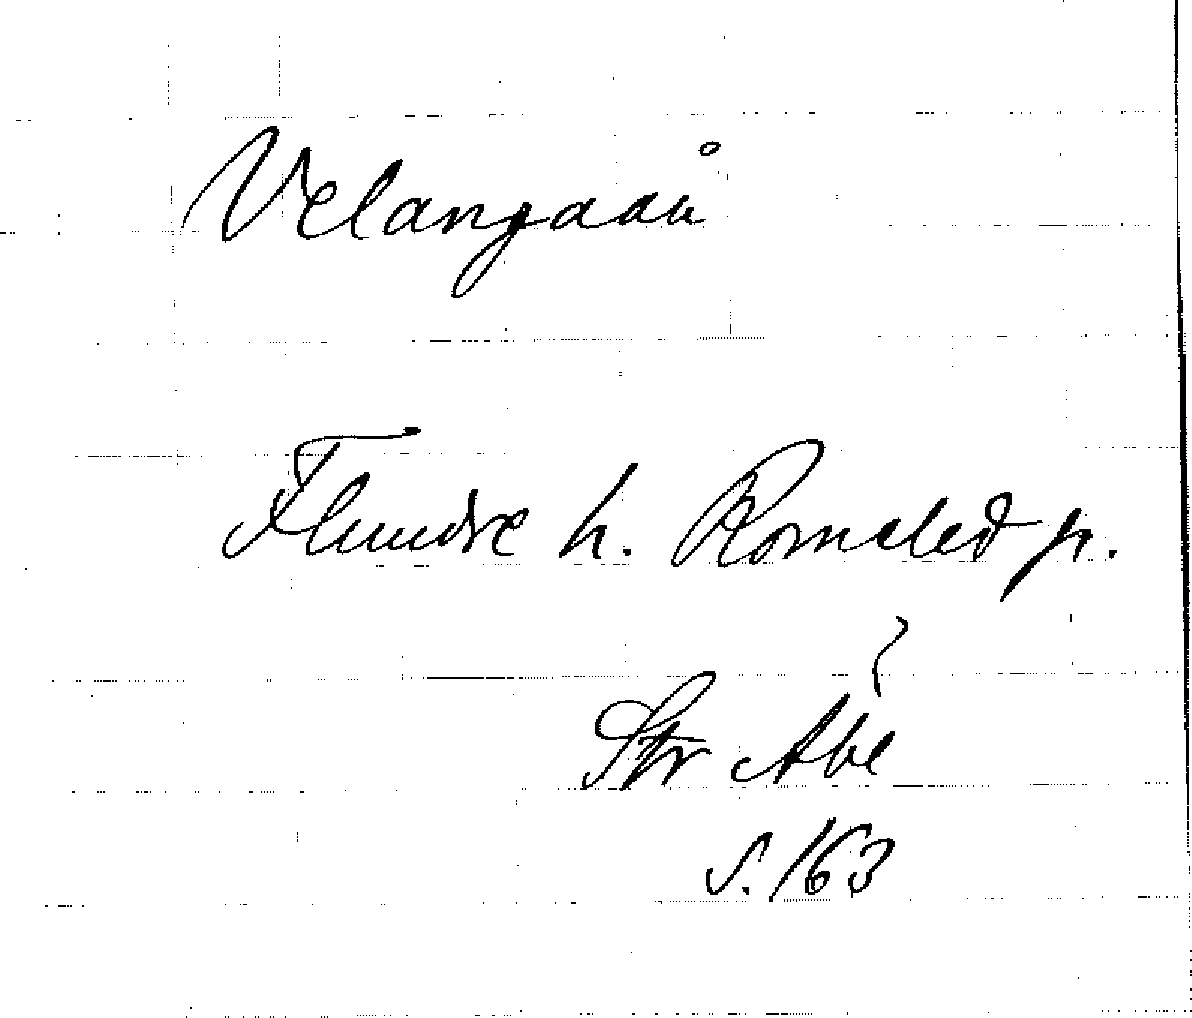 Velangaaů
Flundre h. Romsled p.
Str Abe
S. 163